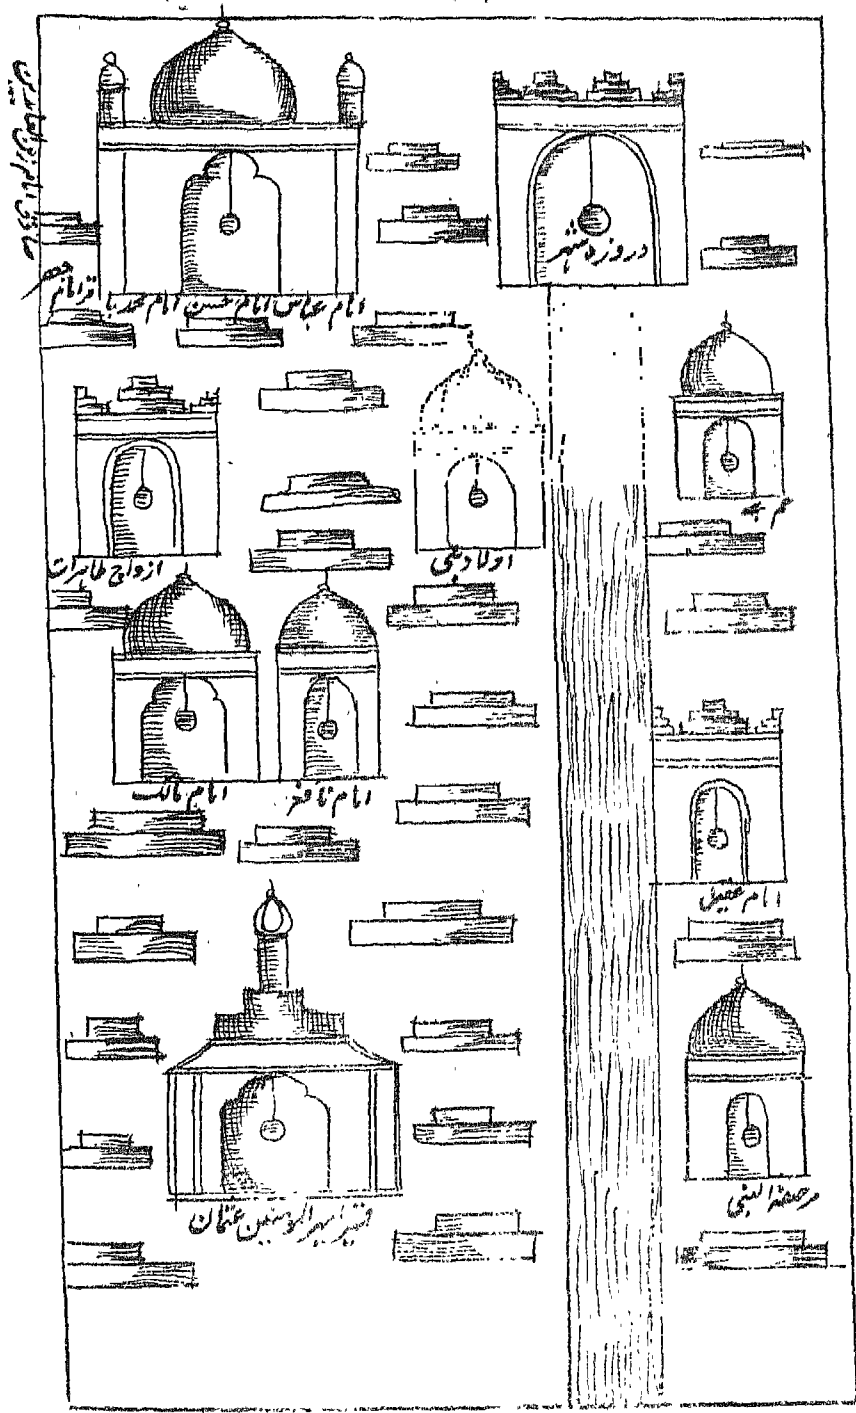 دروزه شهر
امام عباس امام حسن امام محمد باقر امام جعفر
ازواج طاهرات
اولاد نبی
امام مالک
امام نافع
امام عقیل
قبر امیر المومنین عثمان